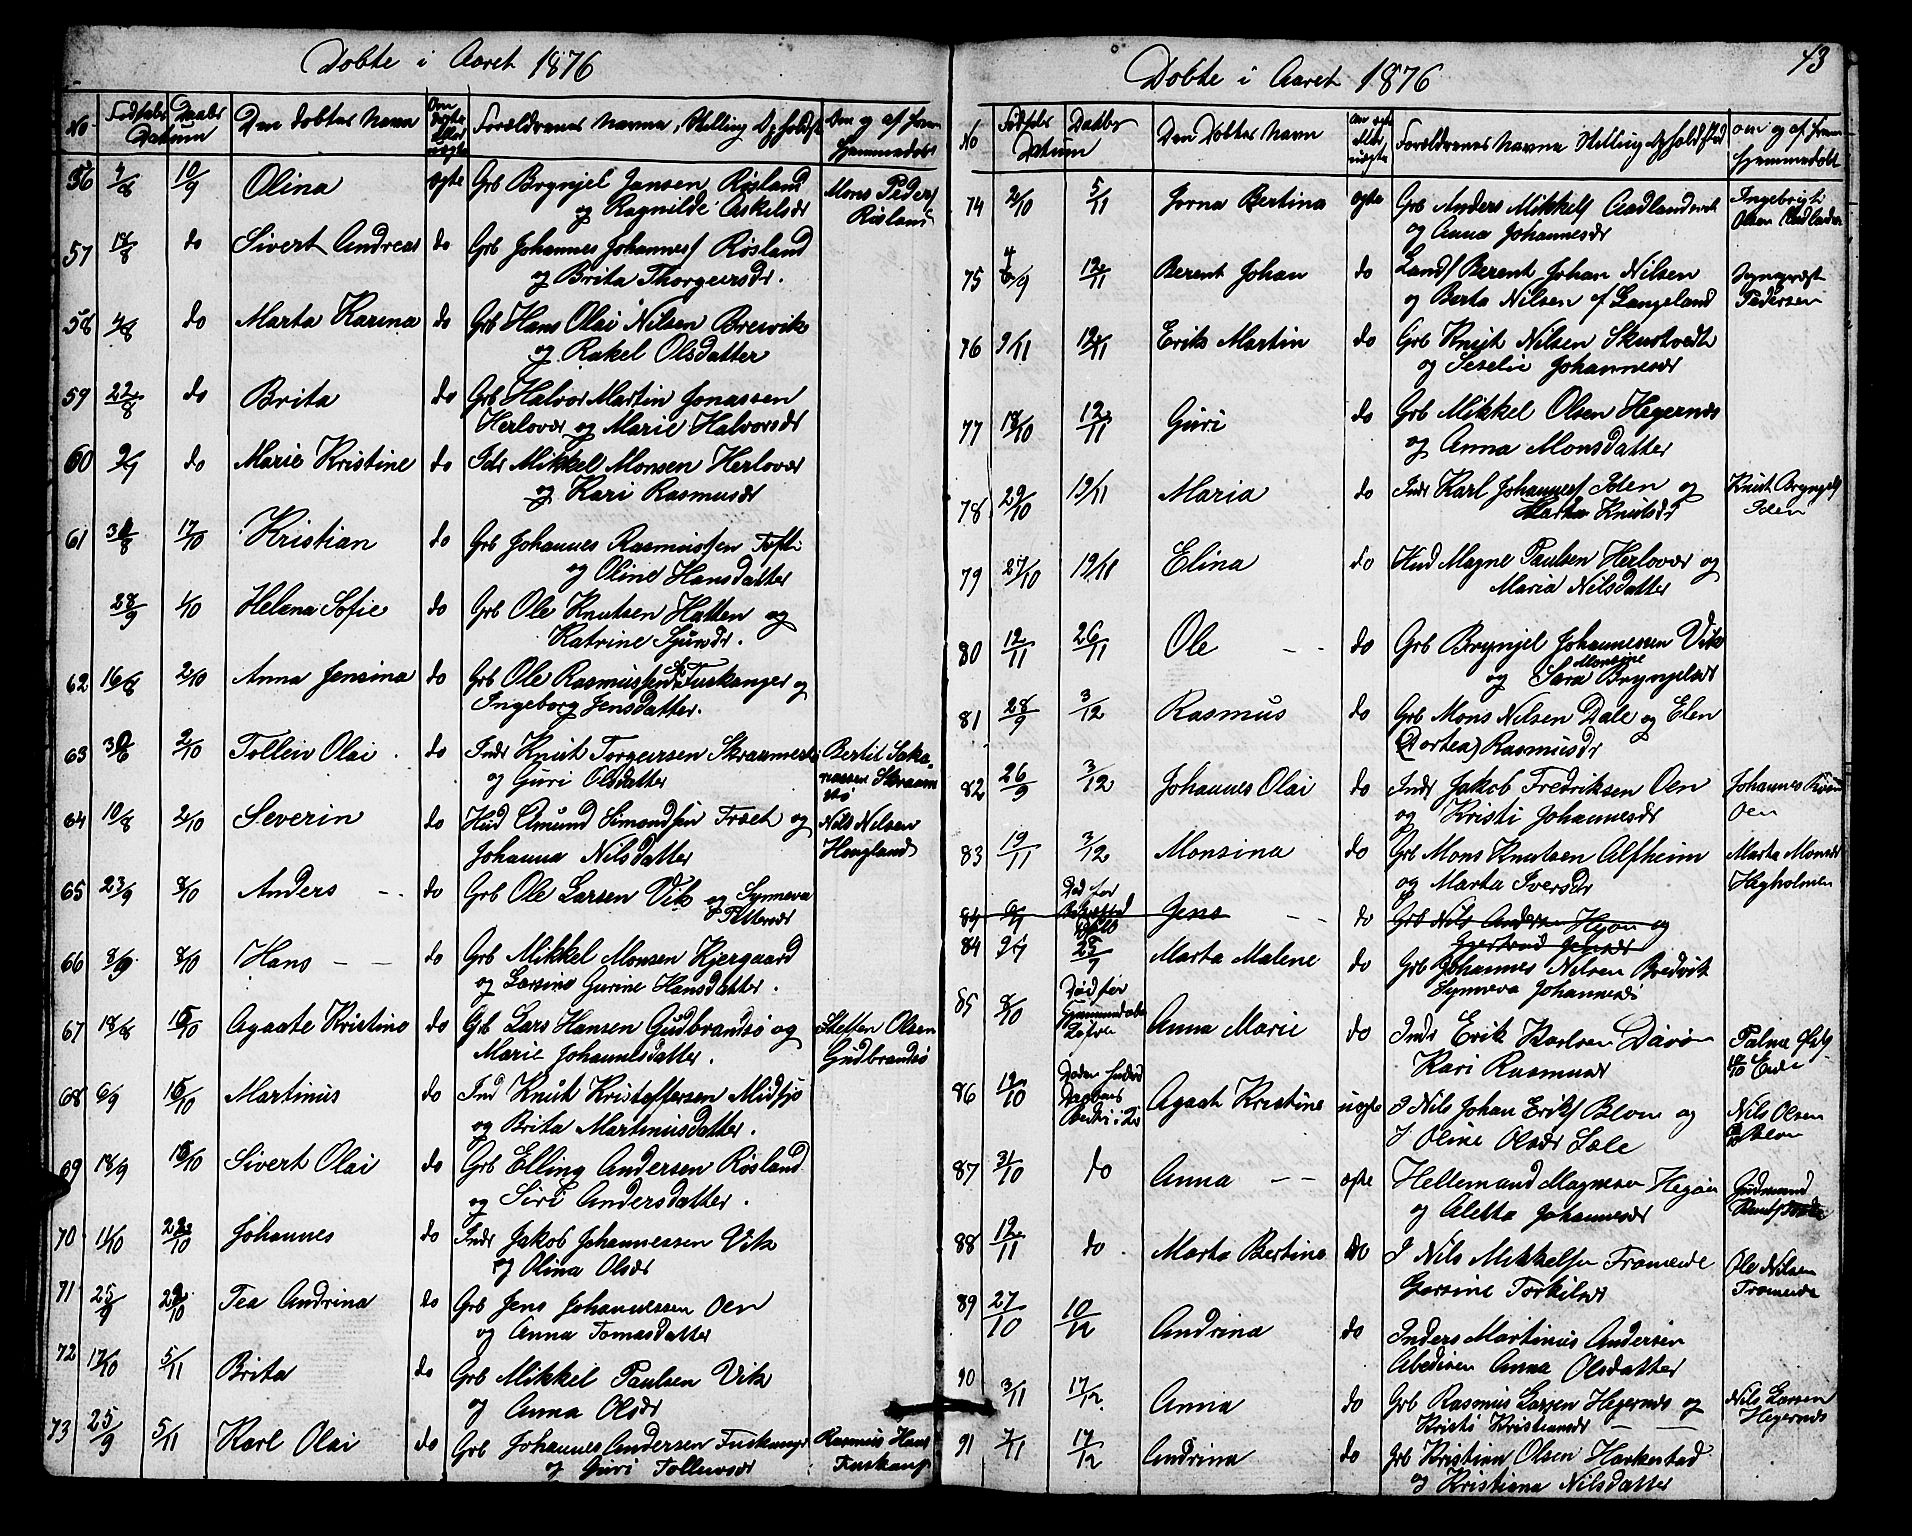 Døbte i Aaret 1876
No Fødsels Daabs Datum Den døbtes Navn Om ægte eller uægte Forældrenes Navne, Stilling Opholdst Om og af hvem hjemmedøbt
56 7/8 10/9 Olina ægte Grb Brynjel Jansen Røsland Mons Peders
og Ragnilde Askelsdr Røsland
57 18/8 do Sivert Andreas do Grb Johannes Johannes/ Røsland
og Brita Thorgeirsdr.
58 4/8 do Marta Karina do Grb Hans Olai Nilsen Breivik
og Rakel Olsdatter
59 22/8 do Brita do Grb Halvor Martin Jonassen
Herlovær og Marie Halvorsdr
60 2/9 do Marie Kristine do Indr Mikkel Monsen Herlovær
og Kari Rasmusdr
61 30/8 17/10 Kristian do Grb Johannes Rasmussen Tofti
og Oline Hansdatter
28/9 1/10 Helena Sofie do Grb Ole Knutsen Hatten og
Katrine Sjursdr.
62 16/8 2/10 Anna Jensina do Grb Ole Rasmussen Fuskanger og
Ingeborg Jensdatter.
63 30/6 2/10 Tolleiv Olai do Indr Knut Torgeirsen Skraamestø Bertil Saka-
og Guri Olsdatter nassen Skraamestø
64 10/8 2/10 Severin do Hud Amund Simondsen Træet og Nils Nilsen
Johanna Nilsdatter Haugland
65 23/9 8/10 Anders do Grb Ole Larsen Vik og Synneva
Pettersdr
66 8/9 8/10 Hans do Grb Mikkel Monsen Kjergaard
og Larsine Gurine Hansdatter.
67 18/8 15/10 Agaate Kristine do Grb Lars Hansen Gudbrandsø og Steffen Olsen
Marie Johannesdatter. Gudbrandsø
68 6/9 15/10 Martinus do Ind Knut Kristoffersen Midsjø
og Brita Martinusdatter.
69 18/9 15/10 Sivert Olai do Grb Elling Andersen Røsland
og Siri Andersdatter.
70 11/10 22/10 Johannes do Indr Jakob Johannessen Vik
og Olina Olsdr
71 25/9 22/10 Tea Andrina do Grb Jens Johannessen Oen
og Anna Tomasdatter
72 17/10 5/11 Brita do Grb Mikkel Paulsen Vik
og Anna Olsdr
73 25/9 5/11 Karl Olai do Grb Johannes Andersen Fuskanger Rasmus Hans
og Guri Folleivsdr Fuskang
Døbte i Aaret 1876 43
No Fødsels Daabs Datum Den Døbtes Navn Om ægte eller uægte Forældrenes Navne Stilling Opholdsted om og af hvem hjemmedøbt
74 2/10 5/11 Jorna Bertina ægte Grb Anders Mikkels/ Aadlandsvik Ingebrigt
og Anna Johannesdr Olsen Aadlandsv
75 4/9 12/11 Berent Johan do Lands/ Berent Johan Nilsen
og Berta Nilsen af Langeland Pedersen
76 9/11 12/11 Erik Martin do Grb Knut Nilsen Skurtvedt
og Seselie Johannesdr
77 18/10 12/11 Guri do Grb Mikkel Olsen Hegernæs
og Anna Monsdatter
78 29/10 19/11 Maria do Indr Karl Johannes/ Iden og Knut Brynjels/
Marta Knutsdr Iden
79 27/10 19/11 Elina do Hud Magne Paulsen Herlovær og
Maria Nilsdatter
80 12/11 26/11 Ole do Grb Brynjel Johannessen Vik
og Sara Monsine Brynjelsdr
81 28/9 3/12 Rasmus do Grb Mons Nilsen Dale og Elen
(Dortea) Rasmusdr
82 26/9 3/12 Johannes Olai do Indr Jakob Fredriksen Oen Johannes
og Kristi Johannesdr Oen
83 19/11 3/12 Monsina do Grb Mons Knutsen Alfheim Marta Monsdr
og Marta Iversdr Hegholmen
84 Død før Jens do Grb Nils Andersen Hjøn og
Gjertrud Jensdr
84 9/7 23/7 Marta Malene do Grb Johannes Nilsen Bredvik
Synneva Johannesdr
85 8/10 Død før Hjemmedaabs Anna Marie do Indr Erik Karlsen Davøn Palma
Kari Rasmusdr
86 12/10 Agaat Kristine uægte I Nils Johan Eriks/ Blom og Nils Olsen
I Oline Olsdr Sole Blom
87 31/10 do Anna ægte Hellemand Magnesen Hegøen Gudmund
og Aletta Johannesdr
88 12/11 do Marta Bertine do I Nils Mikkelsen Fromeide Ole Nilsen
Gorsine Torkilsdr Fromeide
89 27/10 10/12 Andrina do Inders Martinus Andersen
Anna Olsdatter
90 3/11 17/12 Anna do Grb Rasmus Larsen Hegernes og Nils Larsen
Kristi Kristiansdr Hegernes
91 7/11 17/12 Andrina do Grb Kristian Olsen Harkestad
og Kristiana Nilsdatter